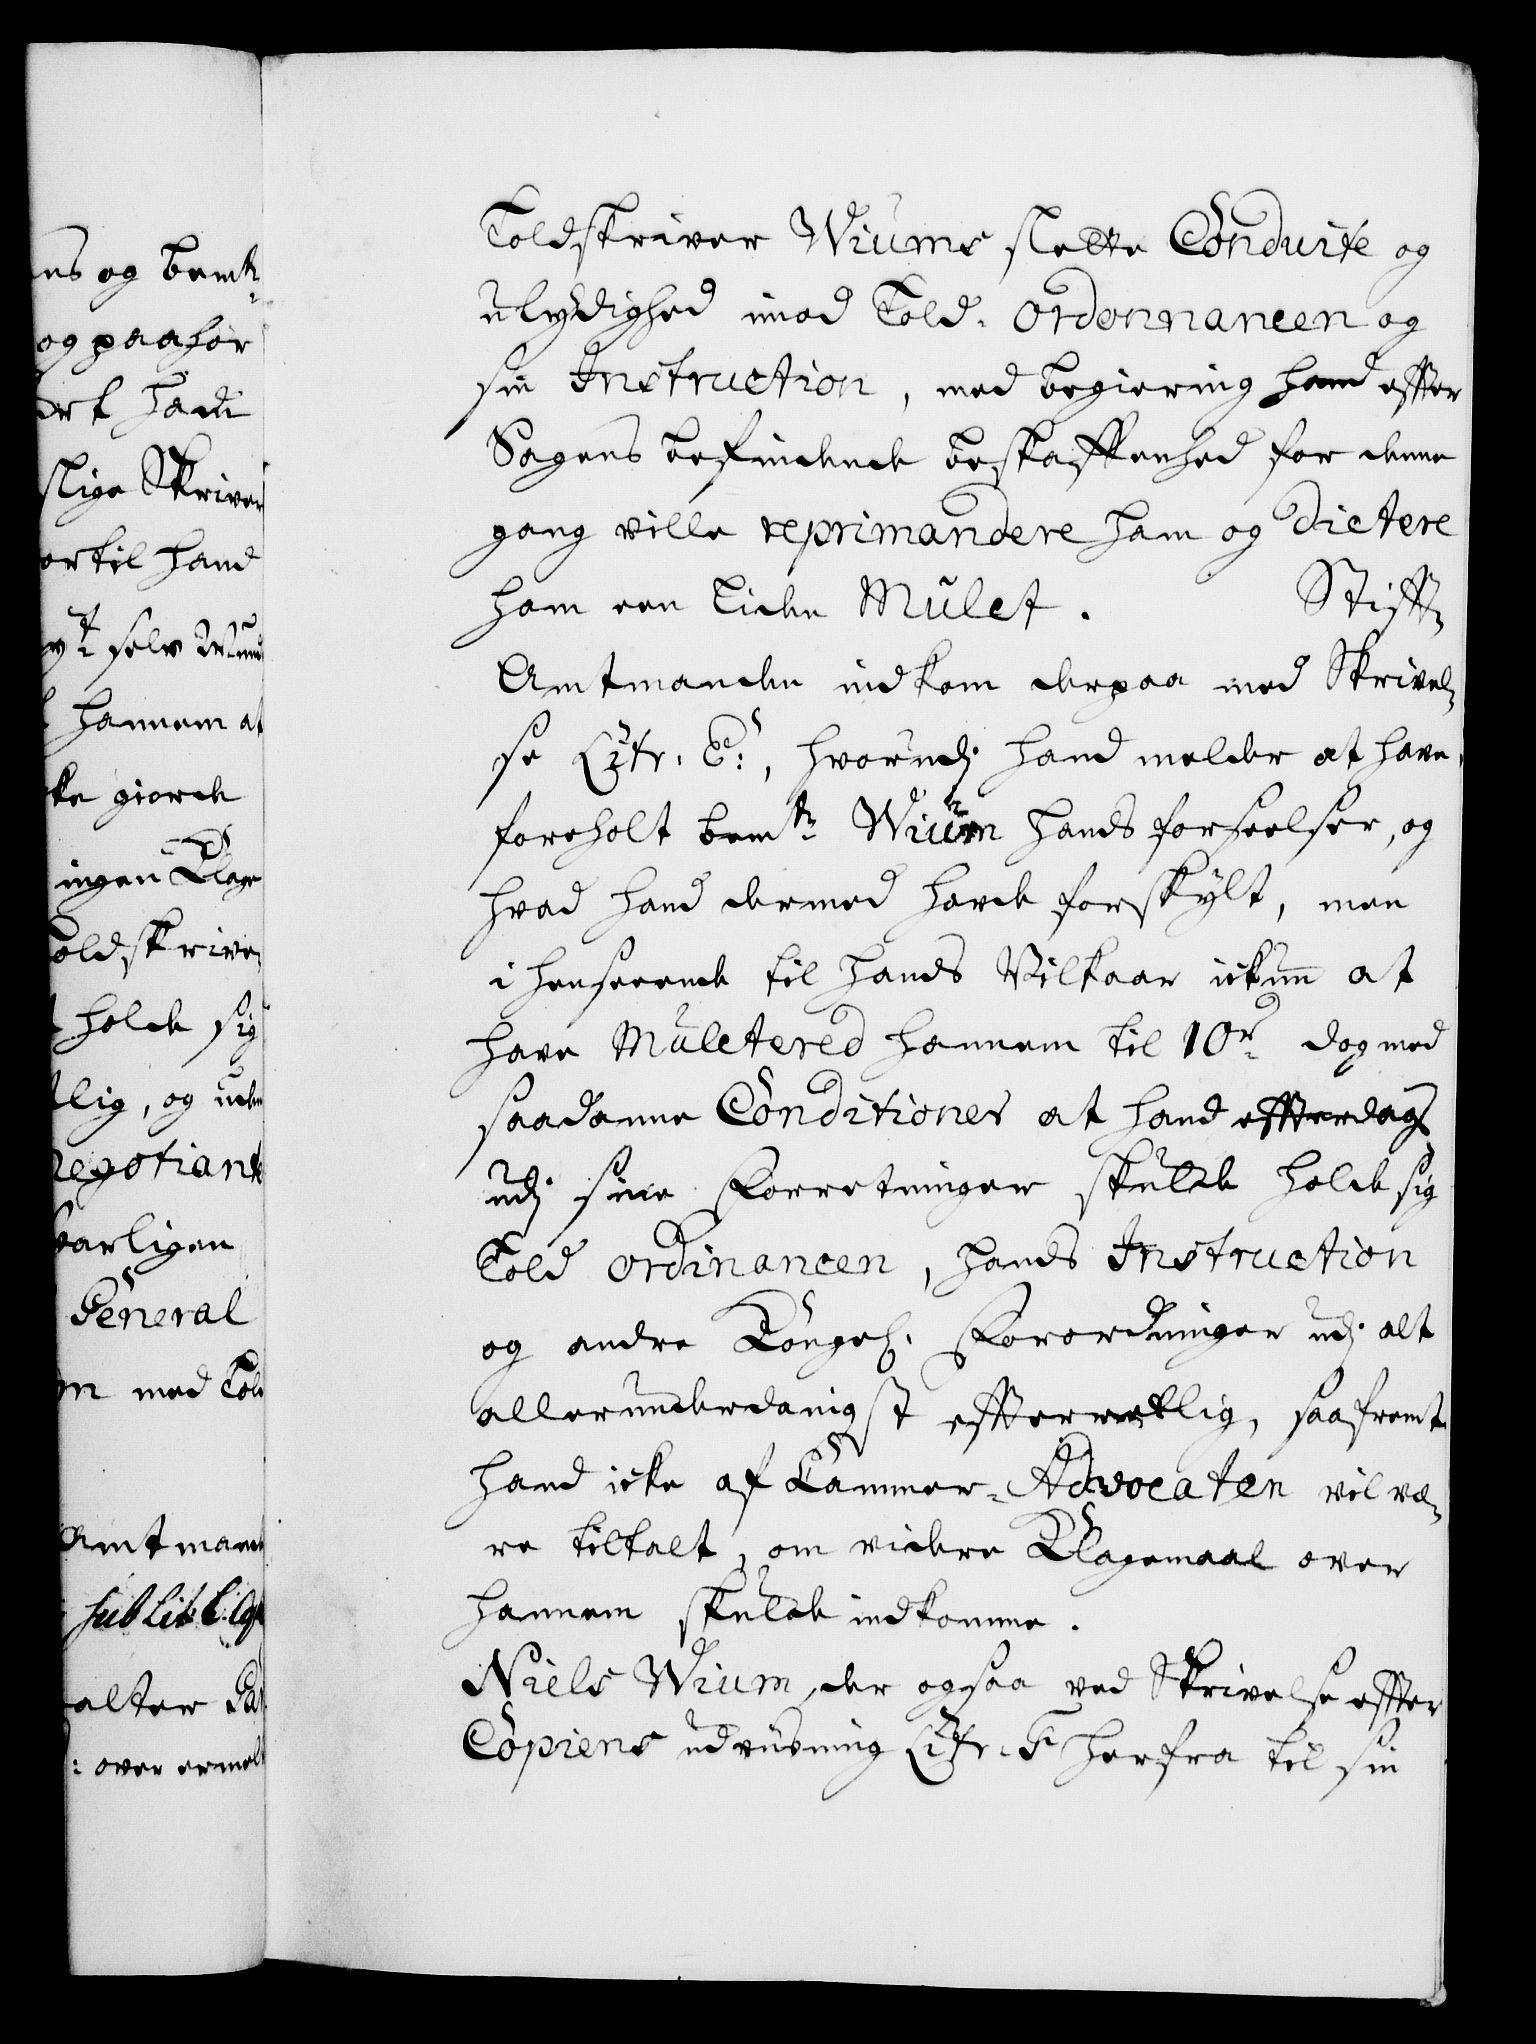 ns og bem:te
og paahør
ort hadi
slige Skriver
ortil hand
selv
hannem at
ke giorde
ingen Klage
oldskrive
holde sig
lig, og uden
Negotiant
barligen
General
on med Told
Amtmand
sub Lit: C.
alter
: over ermelt
Toldskriver Wiums slette Conduite og
ulydighed imod Told-Ordonnancen og
sin Instruction, med begiering hand effter
Sagens befindende beskaffenhed for denne
gang ville reprimandere ham og dictere
ham een liden Mulct. Stifft-
Amtmanden indkom derpaa med Skrivel-
se Litr. E:, hvorudj hand melder at have
foreholt bem:te Wium hands forseelser, og
hvad hand dermed havde forskylt, men
i henseende til hands Vilkaar ickun at
have Mulctered hannem til 10 r. dog med
saadanne Conditioner at hand effterdags
udj sine Forretninger skulde holde sig
Told Ordinancen, hands Instruction
og andre Kongel. Forordninger udj alt
allerunderdanigst effterrettlig, saafremt
hand icke af Cammer-Advocaten vil væ-
re tiltalt, om videre Klagemaal over
hannem skulde indkomme.
Niels Wium, der ogsaa ved Skrivelse effter
Copiens udviisning Litr. F herfra til sin